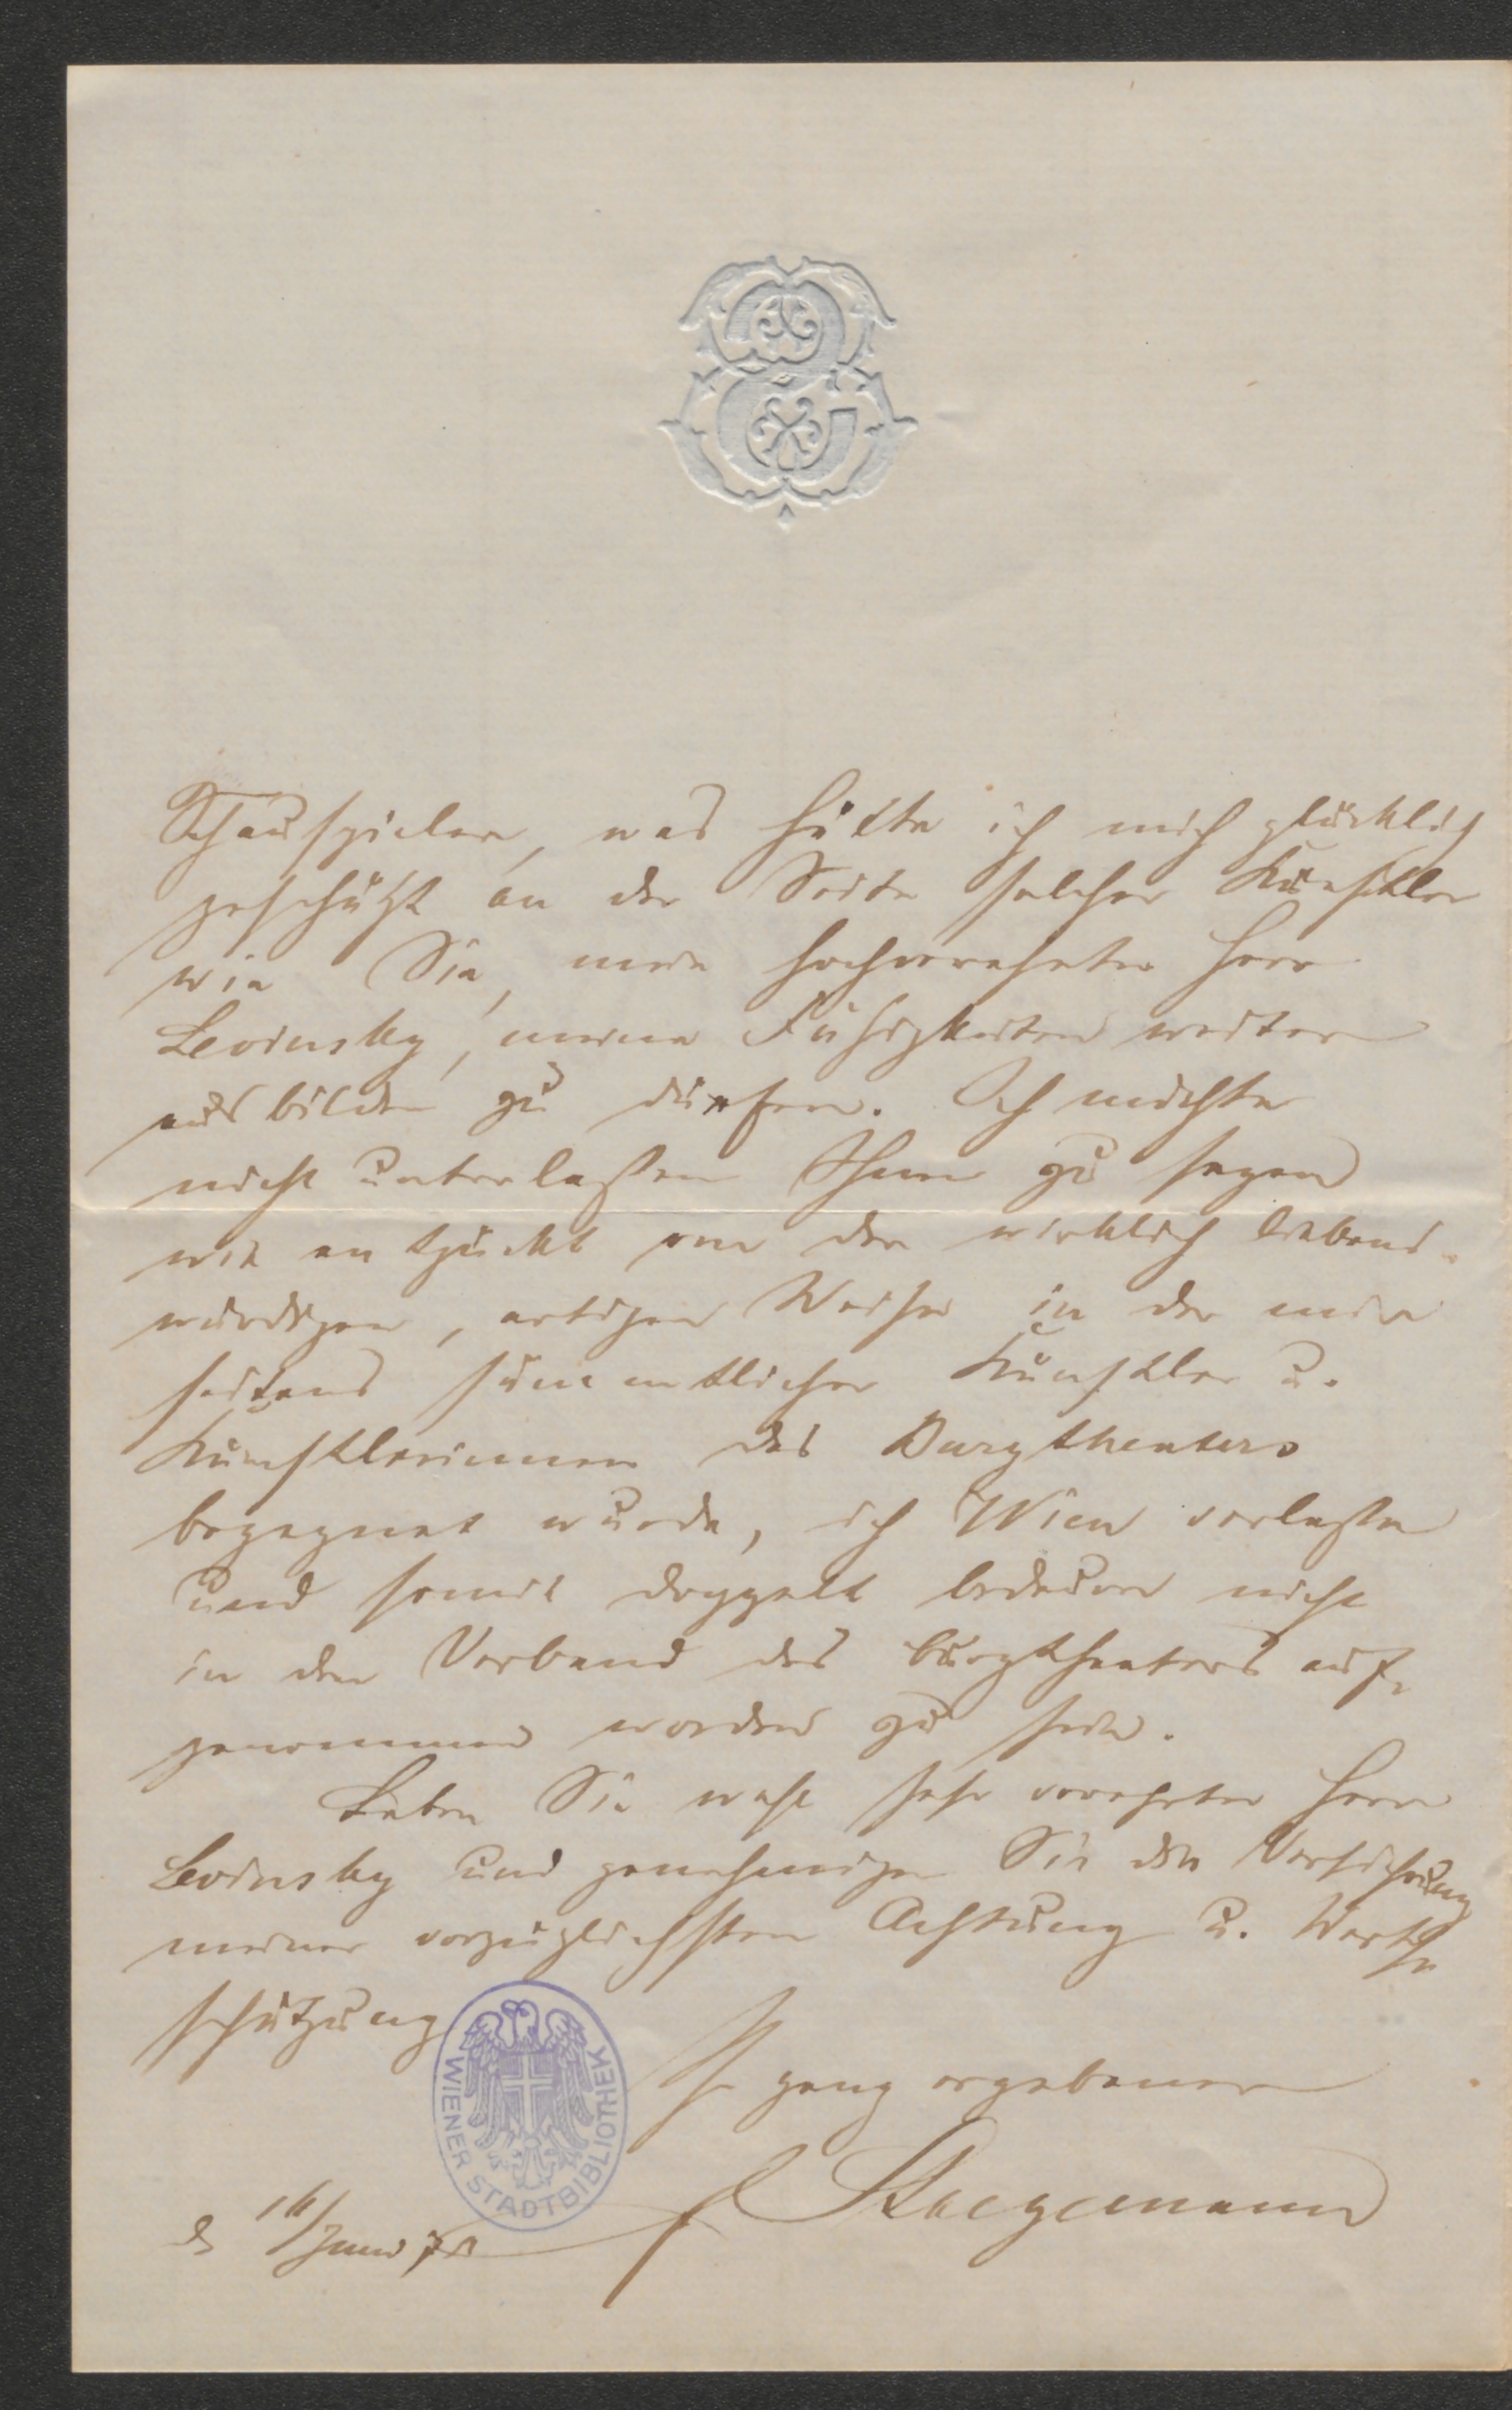 Schauspieler, was hätte ich mich glücklich
geschätzt an der Seite solcher Künstler
wie Sie, mein hochverehrter Herr
Levinsky, meine Fähigkeiten weiter
ausbilden zu dürfen. Ich möchte
nicht unterlaßen Ihnen zu sagen
wie entzückt von der wirklich liebens-
würdigen, artigen Weise in der mir
seitens sämmtlicher Künstler u.
Künstlerinnen des Burgtheaters
begegnet wurde, ich Wien verlaße
und somit doppelt bedaure nicht
in den Verband des Burgtheaters auf-
genommen worden zu sein.
Leben Sie wohl sehr verehrter Herr
Levinsky und genehmigen Sie die Versicherung
meiner vorzüglichsten Achtung u. Werth
schätzung
Ihr ganz ergebener
WIENER STADTBIBLIOTHEK
Juni